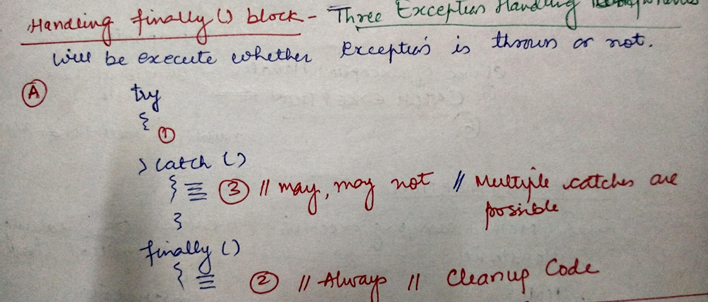 Handling finally () block - Three Exception Handling
will be execute whether Exception is thrown or not.
(A) try
{ (1)
} catch ()
{ (3) // may, may not // Multiple catches are
possible
}
finally ()
{ (2) // Always // Cleanup Code